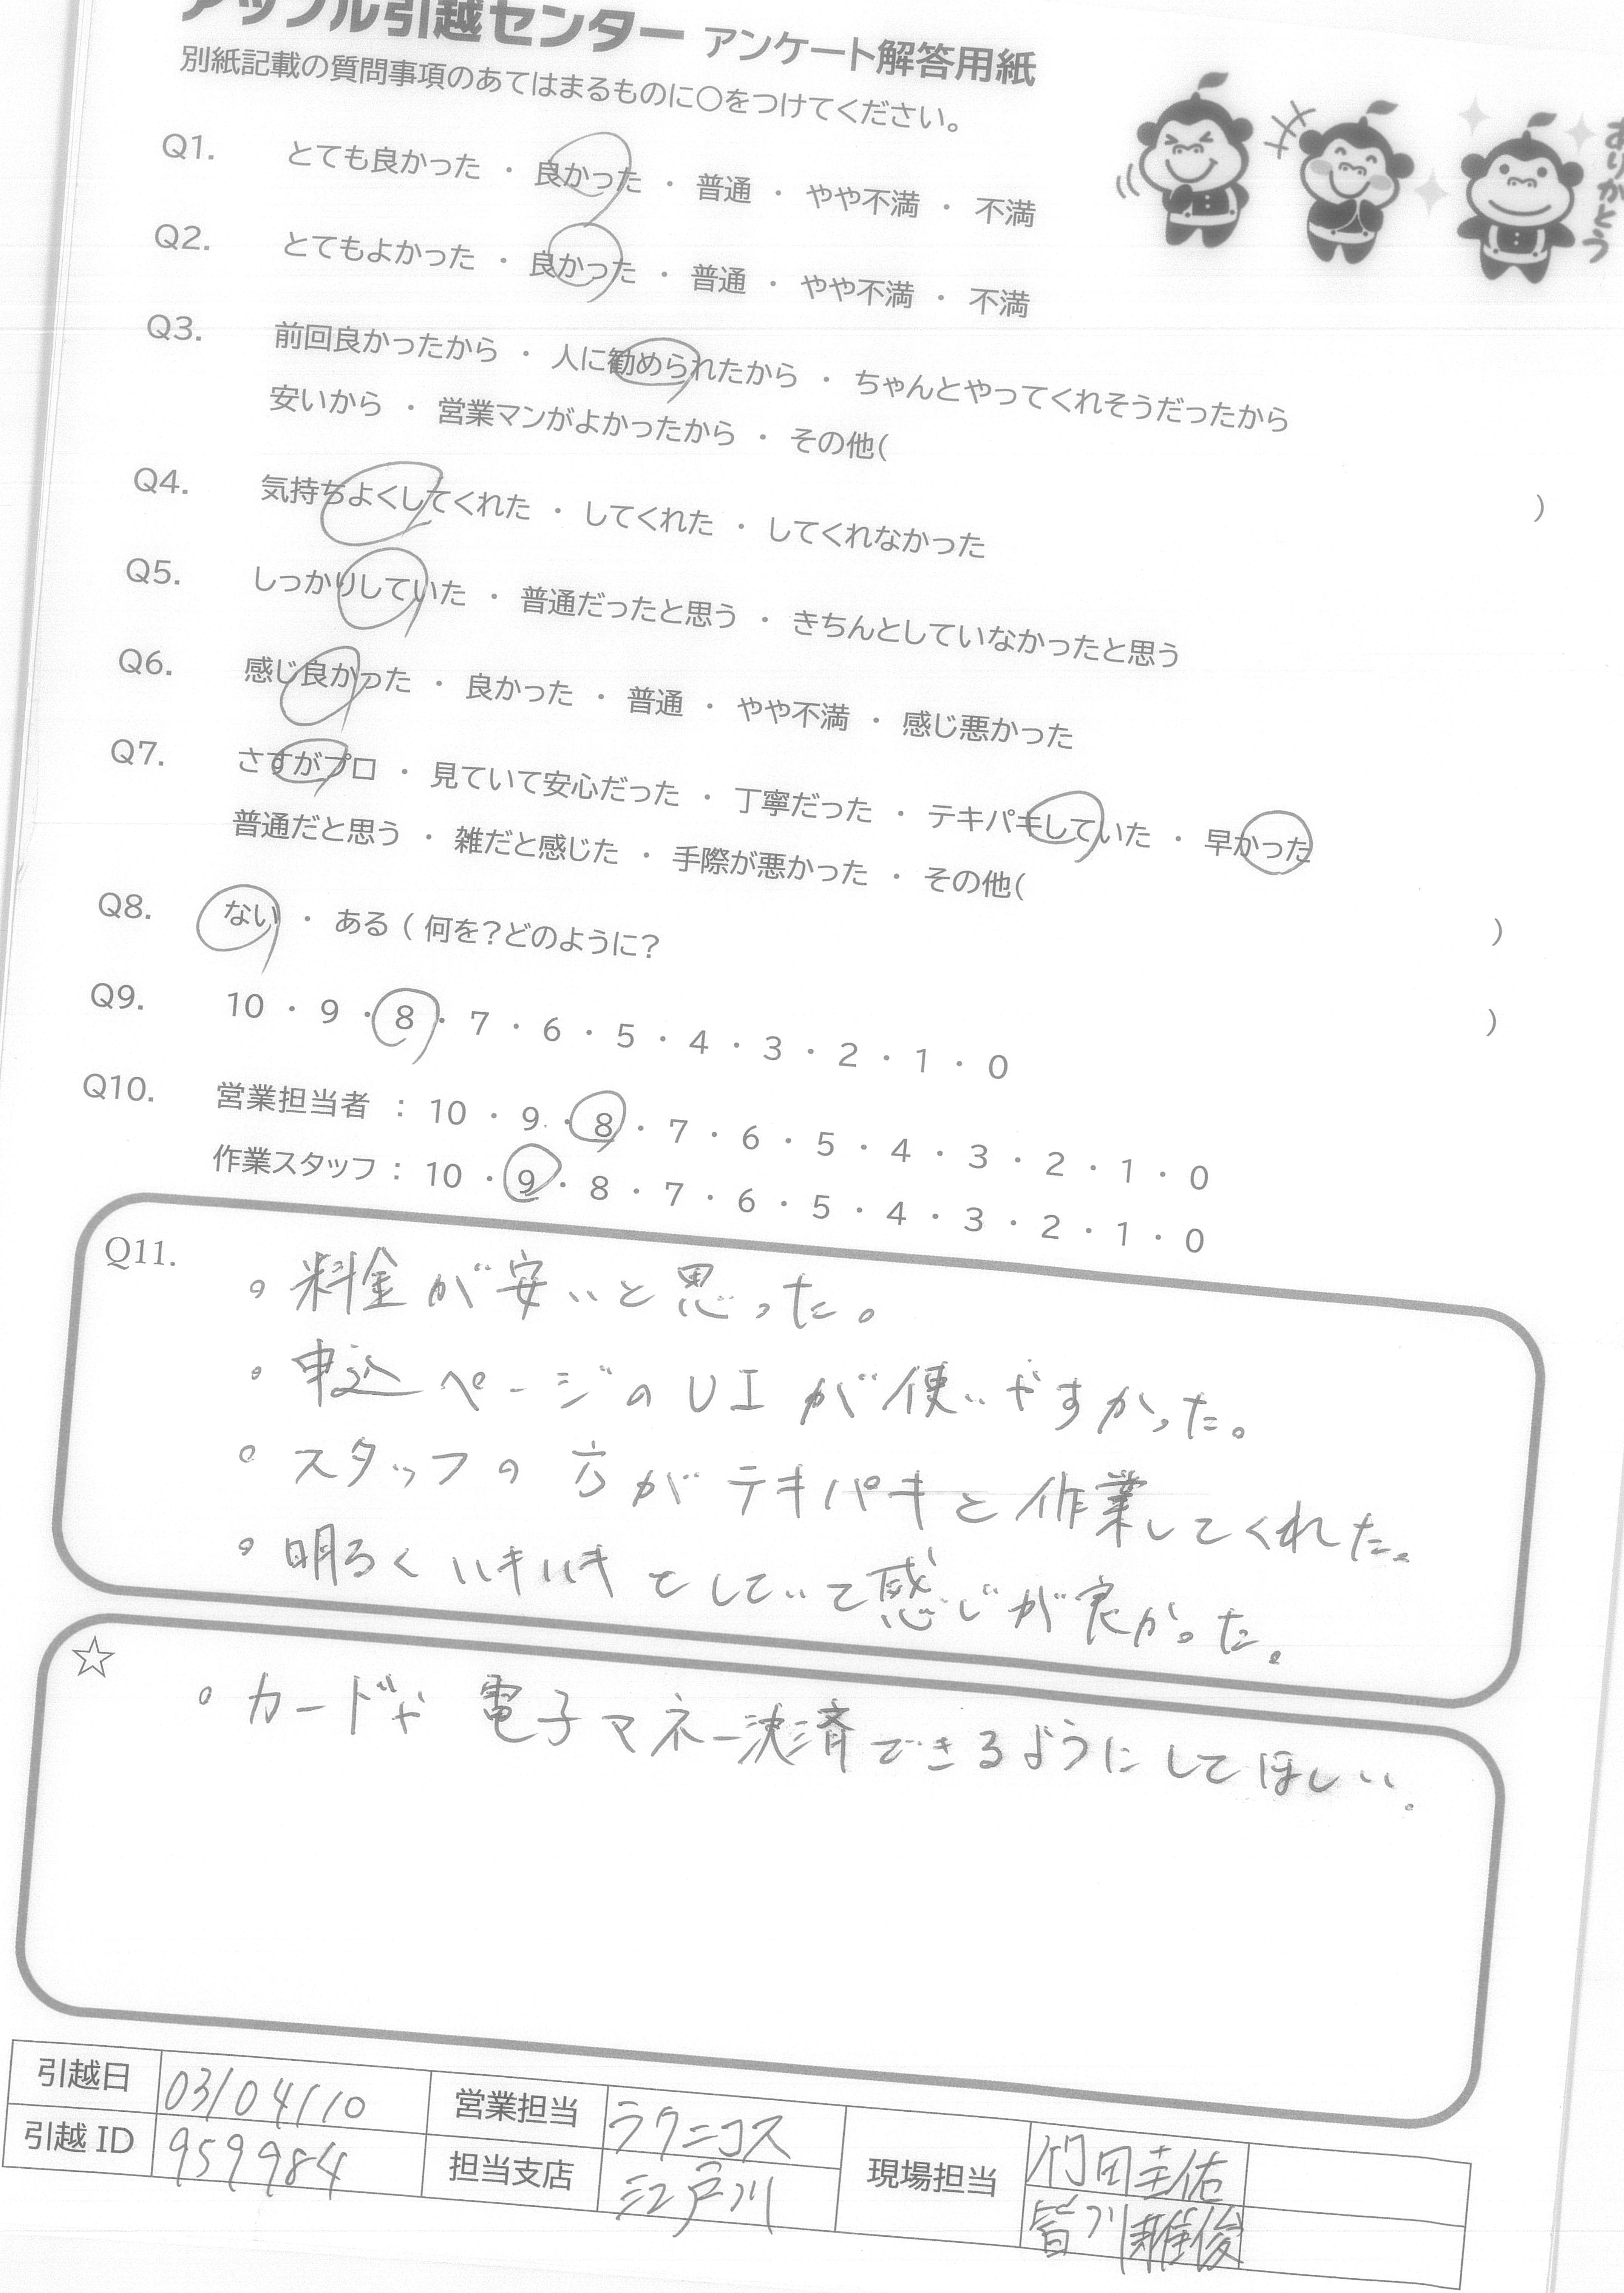 アップル引越センター アンケート解答用紙
別紙記載の質問事項のあてはまるものに〇をつけてください。
ありがとう
Q1. とても良かった ・ 良かった ・ 普通 ・ やや不満 ・ 不満
Q2. とてもよかった ・ 良かった ・ 普通 ・ やや不満 ・ 不満
Q3. 前回良かったから ・ 人に勧められたから ・ ちゃんとやってくれそうだったから
安いから ・ 営業マンがよかったから ・ その他( )
Q4. 気持ちよくしてくれた ・ してくれた ・ してくれなかった
Q5. しっかりしていた ・ 普通だったと思う ・ きちんとしていなかったと思う
Q6. 感じ良かった ・ 良かった ・ 普通 ・ やや不満 ・ 感じ悪かった
Q7. さすがプロ ・ 見ていて安心だった ・ 丁寧だった ・ テキパキしていた ・ 早かった
普通だと思う ・ 雑だと感じた ・ 手際が悪かった ・ その他( )
Q8. ない ・ ある ( 何を?どのように? )
Q9. 10 ・ 9 ・ 8 ・ 7 ・ 6 ・ 5 ・ 4 ・ 3 ・ 2 ・ 1 ・ 0
Q10. 営業担当者 : 10 ・ 9 ・ 8 ・ 7 ・ 6 ・ 5 ・ 4 ・ 3 ・ 2 ・ 1 ・ 0
作業スタッフ : 10 ・ 9 ・ 8 ・ 7 ・ 6 ・ 5 ・ 4 ・ 3 ・ 2 ・ 1 ・ 0
Q11. 。料金が安いと思った。
。申込ページのUIが使いやすかった。
。スタッフの方がテキパキと作業してくれた。
。明るくハキハキとしていて感じが良かった。
☆ 。カードや電子マネー決済できるようにしてほしい。
引越日 03/04/10 営業担当 ラクニコス 現場担当 竹田圭佑
引越ID 959984 担当支店 江戸川 皆川雅俊